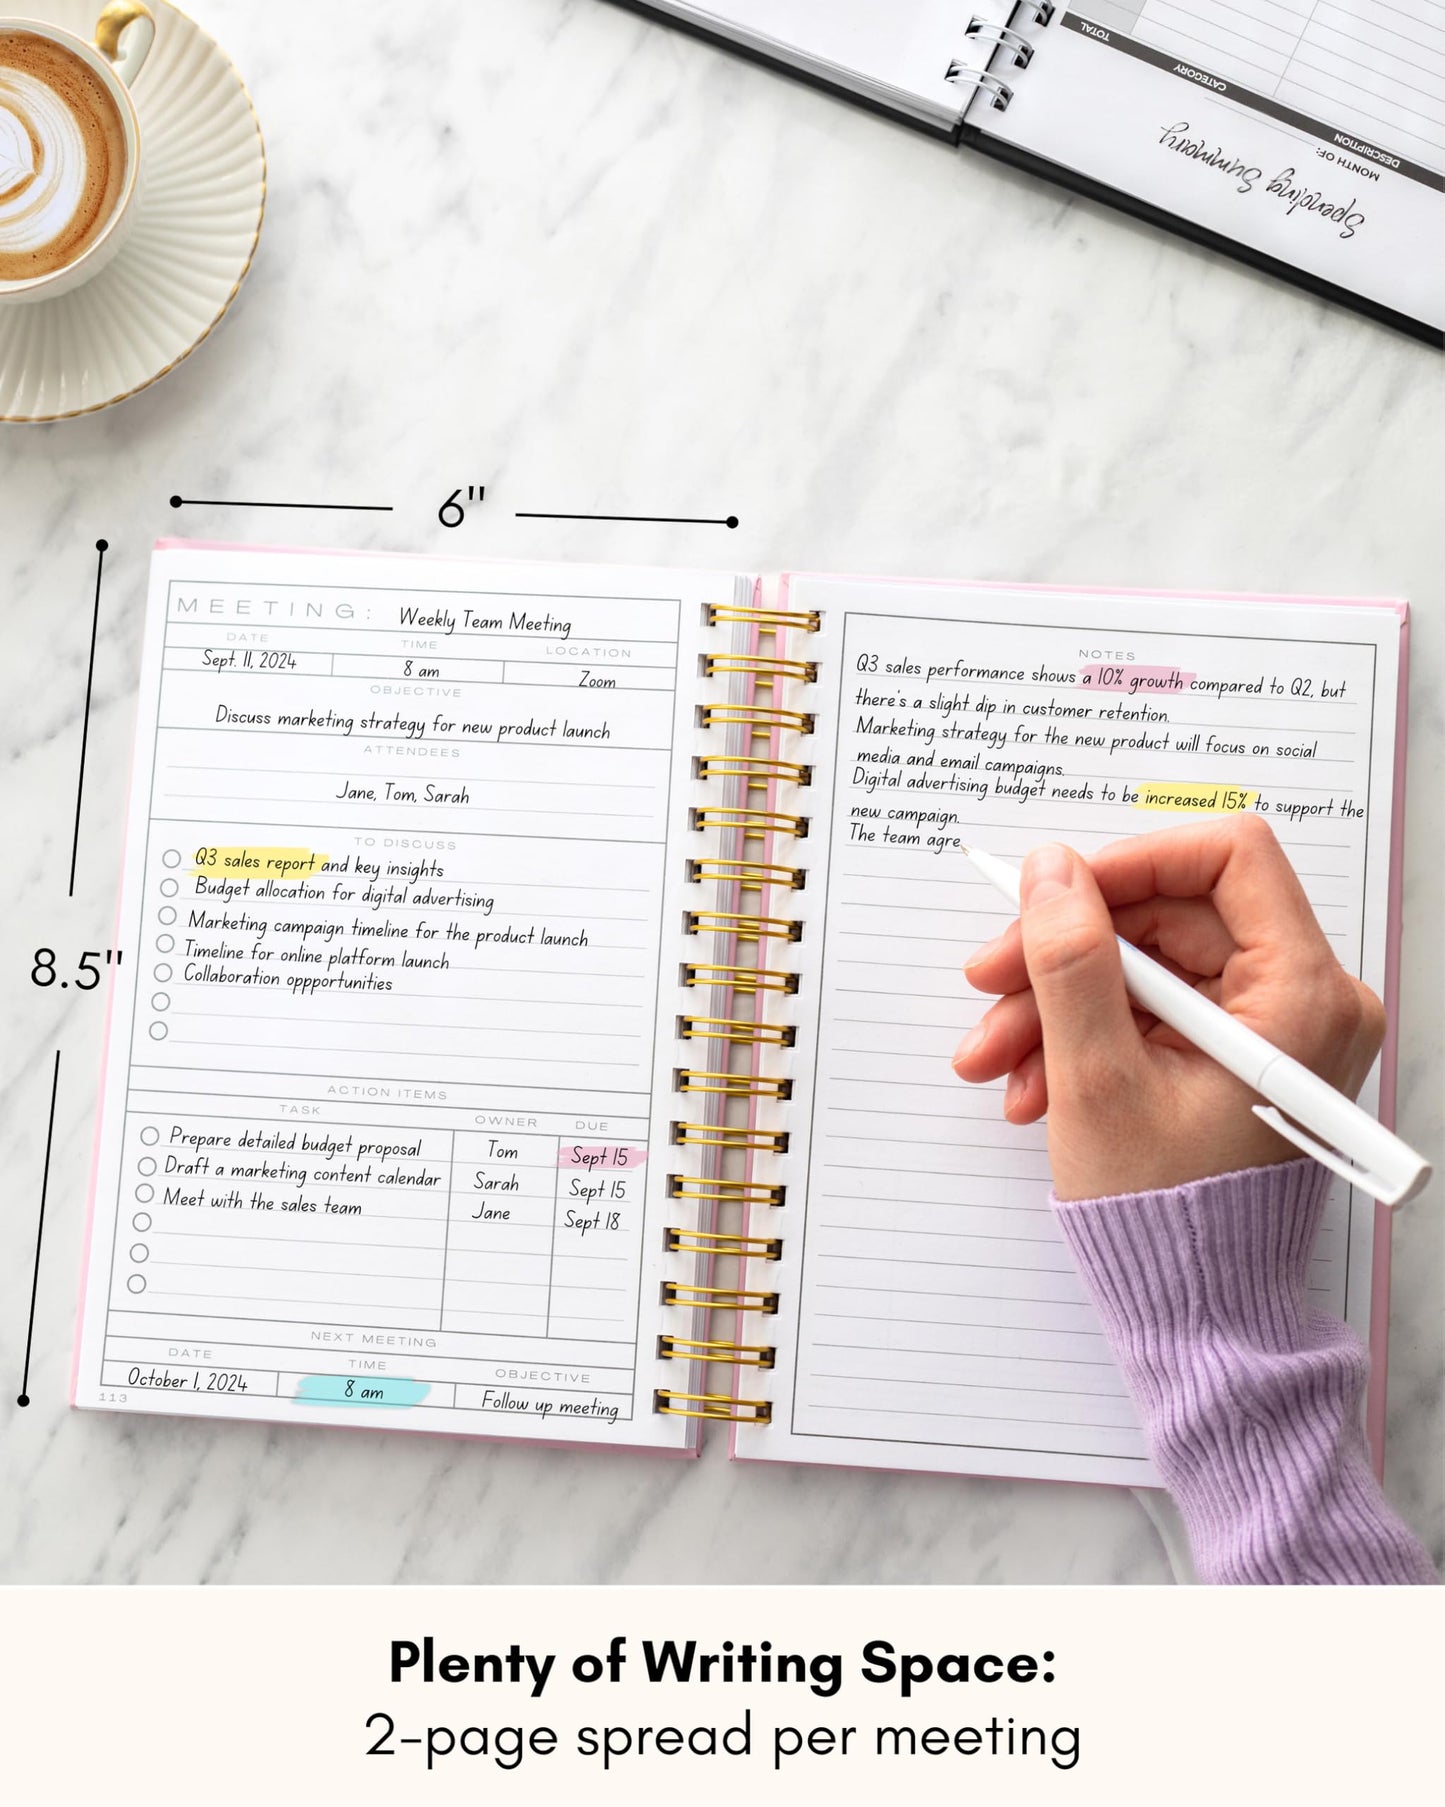 TOTAL
CATEGORY
DESCRIPTION
MONTH OF:
Spending Summary
6"
8.5"
MEETING: Weekly Team Meeting
DATE TIME LOCATION
Sept. 11, 2024 8 am Zoom
OBJECTIVE
Discuss marketing strategy for new product launch
ATTENDEES
Jane, Tom, Sarah
TO DISCUSS
Q3 sales report and key insights
Budget allocation for digital advertising
Marketing campaign timeline for the product launch
Timeline for online platform launch
Collaboration oppportunities
ACTION ITEMS
TASK OWNER DUE
Prepare detailed budget proposal Tom Sept 15
Draft a marketing content calendar Sarah Sept 15
Meet with the sales team Jane Sept 18
NEXT MEETING
DATE TIME OBJECTIVE
October 1, 2024 8 am Follow up meeting
113
NOTES
Q3 sales performance shows a 10% growth compared to Q2, but
there's a slight dip in customer retention.
Marketing strategy for the new product will focus on social
media and email campaigns.
Digital advertising budget needs to be increased 15% to support the
new campaign.
The team agre
Plenty of Writing Space:
2-page spread per meeting